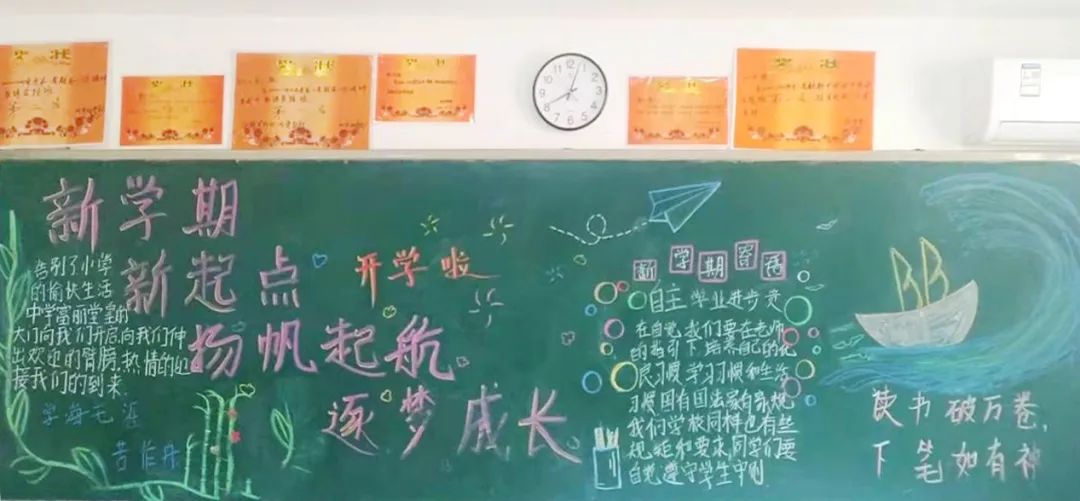 奖状
奖状
奖状
奖状
奖状
新学期
新起点
扬帆起航
逐梦成长
开学啦
告别了小学
的愉快生活
中学富丽堂皇的
大门向我们开启,向我们伸
出欢迎的臂膀,热情的迎
接我们的到来
学海无涯
苦作舟
新学期寄语
自主学业进步是
在自觉,我们要在老师
的指引下培养自己的优
良习惯,学习习惯和生活
习惯国有国法家有家规
我们学校同样也有些
规矩和要求,同学们要
自觉遵守学生守则
读书破万卷,
下笔如有神